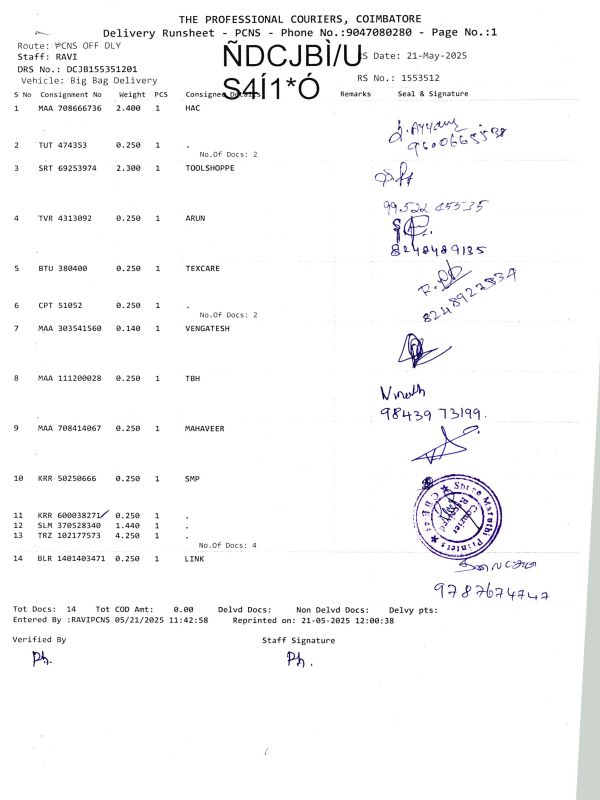 THE PROFESSIONAL COURIERS, COIMBATORE
Delivery Runsheet - PCNS - Phone No.:9047080280 - Page No.:1
Route: PCNS OFF DLY
ÑDCJBÌ/U
S Date: 21-May-2025
Staff: RAVI
DRS No.: DCJB155351201
S4Í1*Ó
RS No.: 1553512
Vehicle: Big Bag Delivery
S No Consignment No Weight PCS Consignee Details Remarks Seal & Signature
1 MAA 708666736 2.400 1 HAC
9600665538
2 TUT 474353 0.250 1 .
No.Of Docs: 2
3 SRT 69253974 2.300 1 TOOLSHOPPE
99522 45535
4 TVR 4313092 0.250 1 ARUN
8248489135
5 BTU 380400 0.250 1 TEXCARE
8248922834
6 CPT 51052 0.250 1 .
No.Of Docs: 2
7 MAA 303541560 0.140 1 VENGATESH
8 MAA 111200028 0.250 1 TBH
Vinoth
98439 73199.
9 MAA 708414067 0.250 1 MAHAVEER
10 KRR 50250666 0.250 1 SMP
Shree Maruthi Printers
CBE-44
Courier
11 KRR 600038271 0.250 1 .
12 SLM 370528340 1.440 1 .
13 TRZ 102177573 4.250 1 .
No.Of Docs: 4
14 BLR 1401403471 0.250 1 LINK
9787674747
Tot Docs: 14 Tot COD Amt: 0.00 Delvd Docs: Non Delvd Docs: Delvy pts:
Entered By :RAVIPCNS 05/21/2025 11:42:58 Reprinted on: 21-05-2025 12:00:38
Verified By Staff Signature
Ph. Ph.